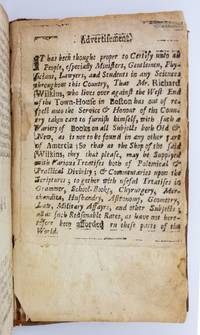 Advertisement.
IT has been thought proper to Certify unto all
People, especially Ministers, Gentlemen, Phy-
sicians, Lawyers, and Students in any Sciences
throughout this Country, That Mr. Richard
Wilkins, who lives over against the West End
of the Town-House in Boston has out of res-
pect unto the Service & Honour of the Coun-
try taken care to furnish himself, with such a
Variety of Books on all Subjects both Old &
New, as is not to be found in any other part
of America; So that at the Shop of the said
Wilkins, they that please, may be Supplyed
with Various Treatises both of Polemical &
Practical Divinity; & Commentaries upon the
Scriptures; together with useful Treatises in
Grammer, School-Books, Chyrurgery, Mer-
chandize, Husbandry, Astronomy, Geometry,
Law, Military Affayrs, and other Subjects,
at such Reasonable Rates, as have not here-
tofore been afforded in these parts of the
World.